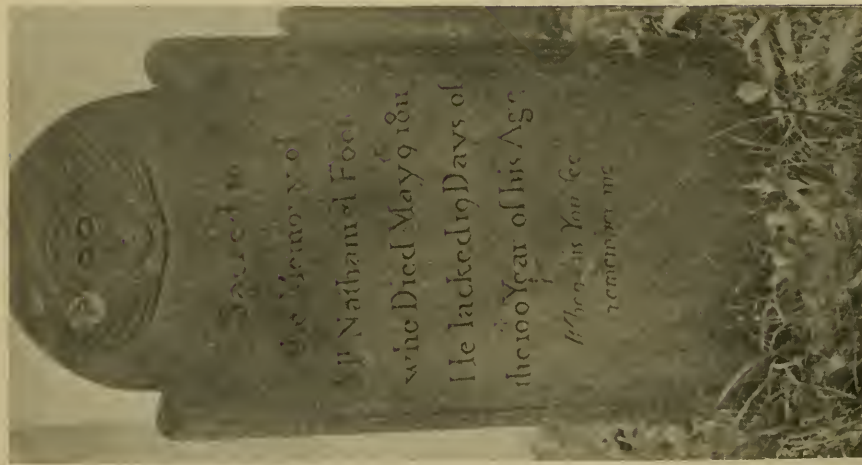 Sacred to
the Memory of
Nathaniel Foot
who Died May 9 1811
He lacked 19 Days of
the 100 Year of his Age
When this You See
remember me